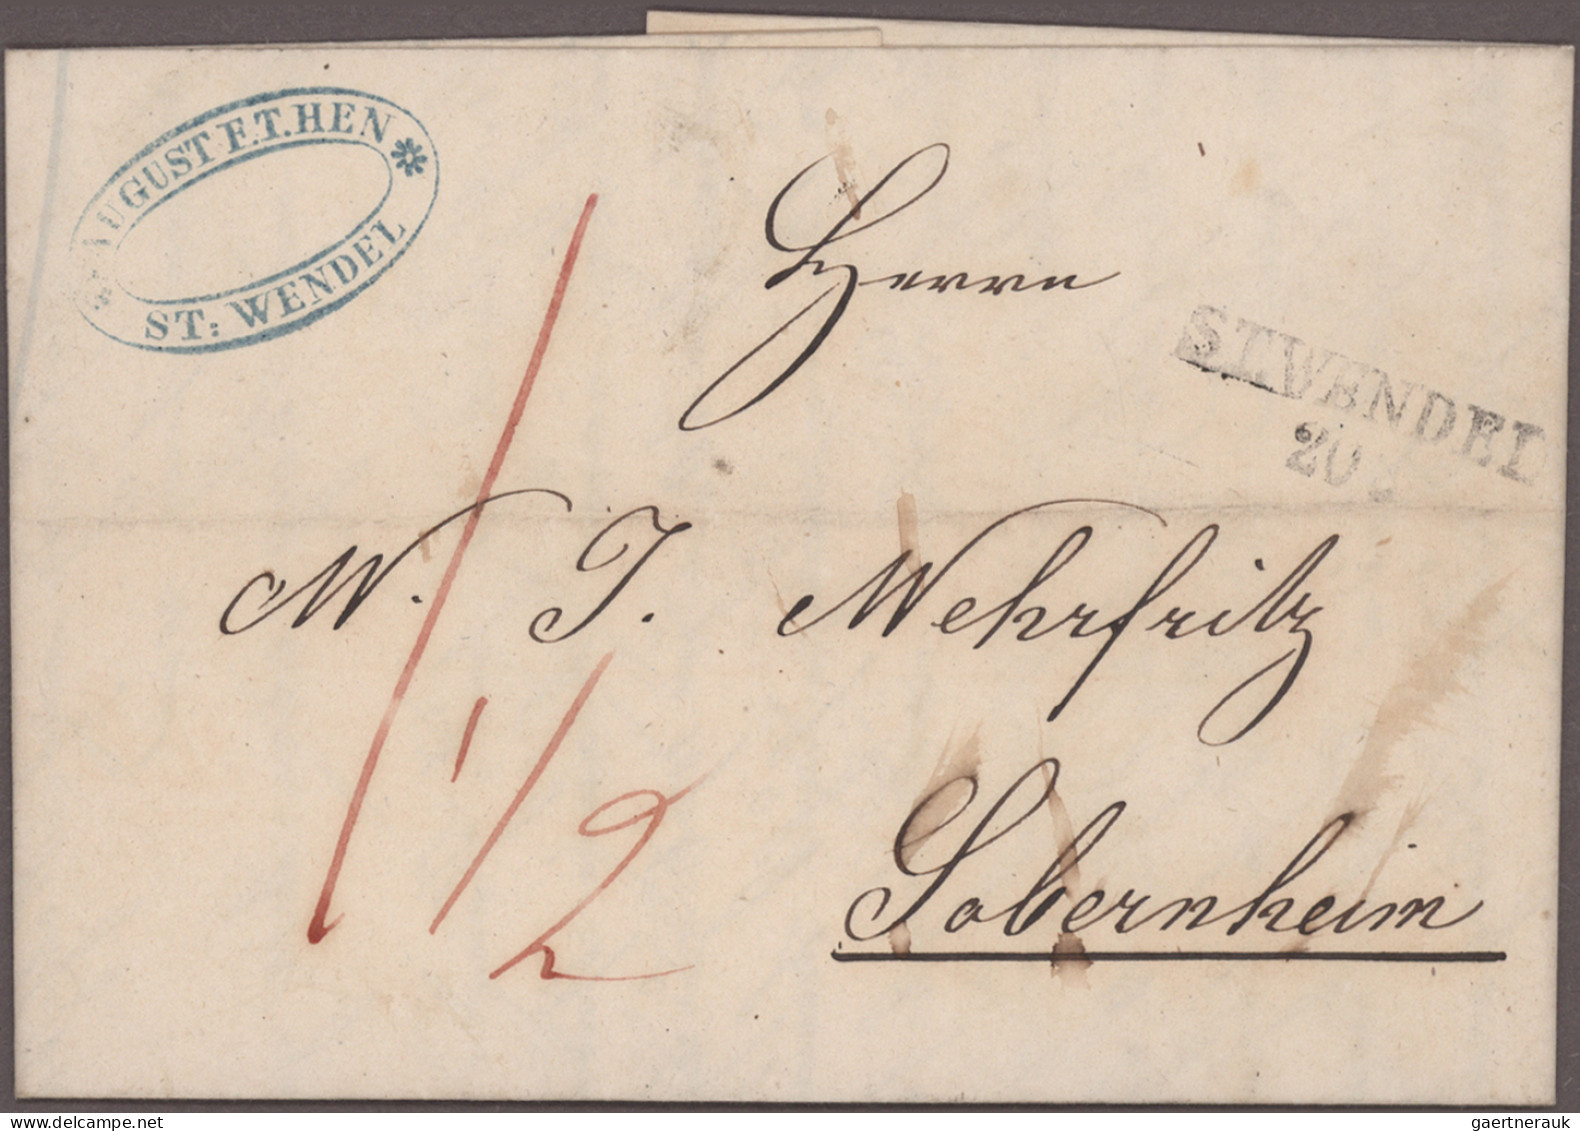 AUGUST F.T. HEN
ST: WENDEL
Herrn
ST.WENDEL
20
W. J. Wehrfritz
1 1/2
Sobernheim
gaertnerauk